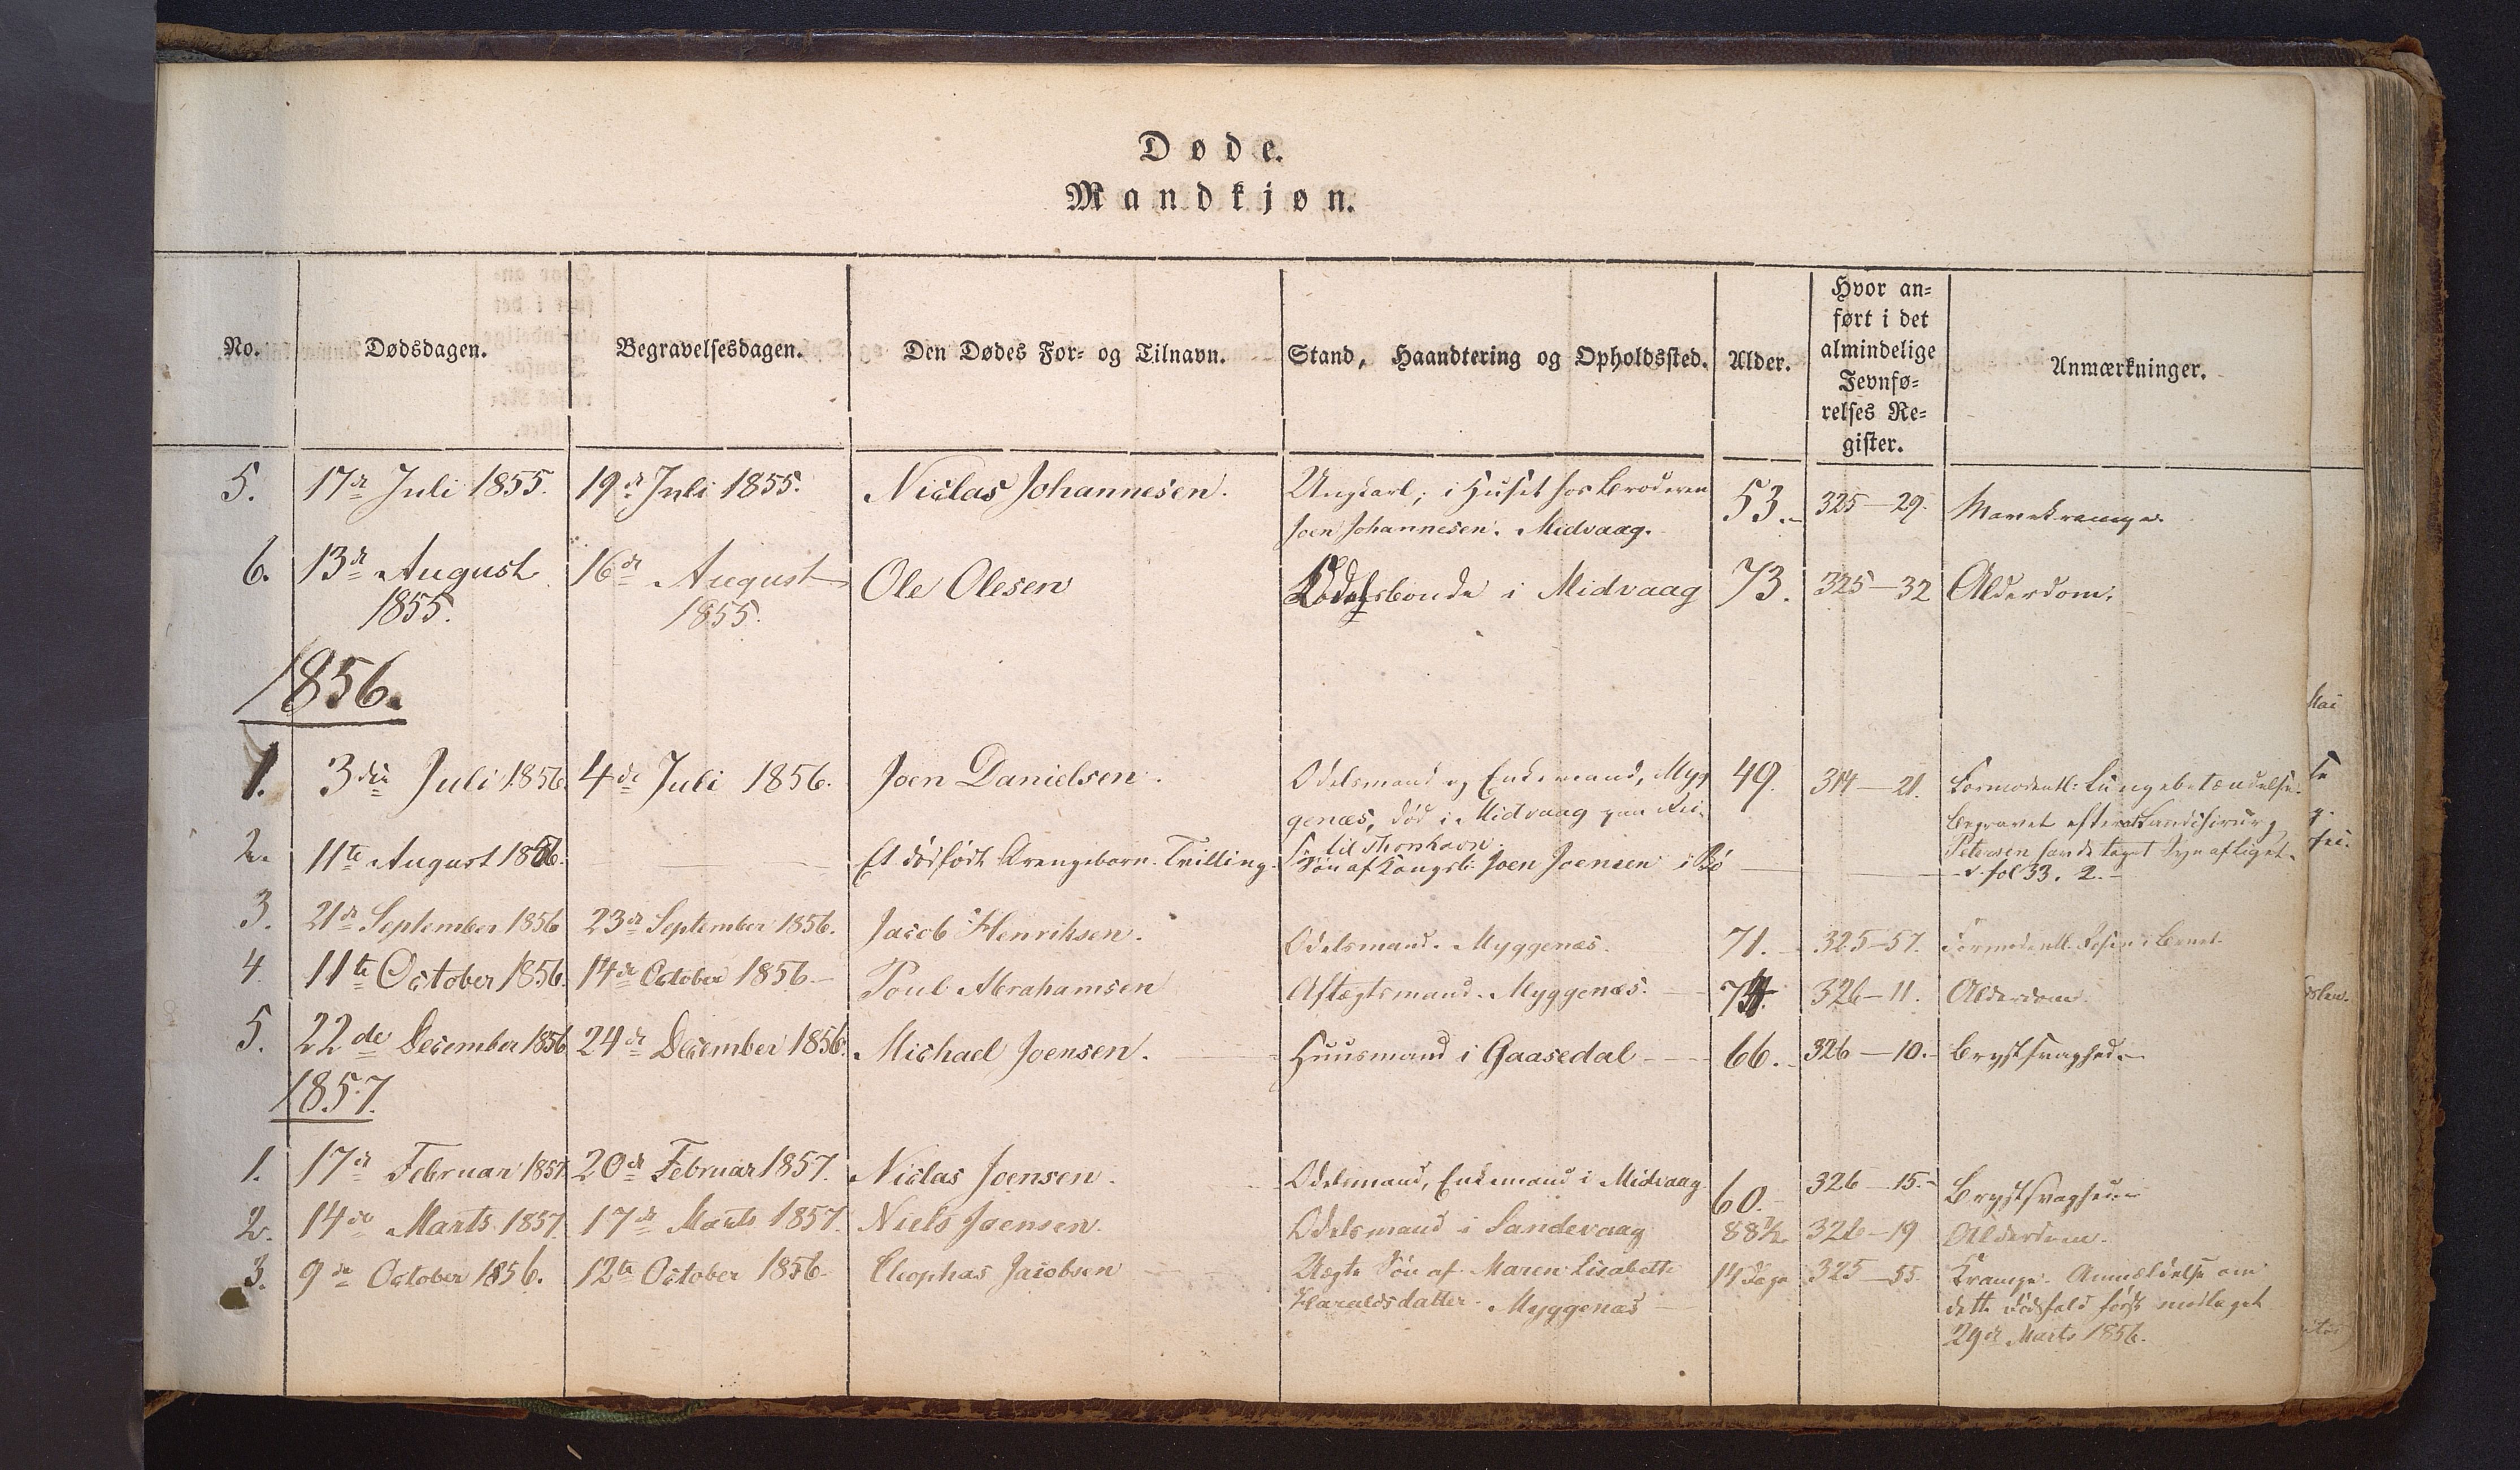 Døde.
Mandkjøn.
No.
Dødsdagen.
Begravelsesdagen.
Den Dødes For= og Tilnavn.
Stand, Haandtering og Opholdssted.
Alder.
Hvor an=
ført i det
almindelige
Jevnfø=
relses Re=
gister.
Anmærkninger.
5. 17de Juli 1855. 19de Juli 1855. Niclas Johannesen. Ungkarl; i Huset hos Broderen 53. 325-29. Mavekrampe.
Joen Johannesen. Midvaag.
6. 13de August 16de August Ole Olesen Odelsbonde i Midvaag 73. 325-32 Alderdom.
1855. 1855.
1856.
1. 3die Juli 1856. 4de Juli 1856. Joen Danielsen. Odelsmand og Enkemand, Myg 49. 314-21. Formodentl: Lungebetændelse.
genæs, død i Midvaag paa Rei-
se til Thorshavn.
Begravet efterat Landchirurg
Petersen havde taget Syn af Liget.
2. 11te August 1856. Et dødfødt Drengebarn. Tvilling. Søn af Kongsb: Joen Joensen i Bø v. fol 33. 2.
3. 21de September 1856 23de September 1856. Jacob Henriksen. Odelsmand. Myggenæs. 71. 325-57. Formodentl.
4. 11te October 1856. 14de October 1856 Poul Abrahamsen Aftægtsmand. Myggenæs. 74. 326-11. Alderdom.
5. 22de December 1856 24de December 1856. Michael Joensen. Huusmand i Gaasedal 66. 326-10. Brystsvaghed.
1857.
1. 17de Februar 1857. 20de Februar 1857. Niclas Joensen. Odelsmand, Enkemand i Midvaag. 60. 326-15. Brystsvaghed.
2. 14de Marts 1857. 17de Marts 1857. Niels Joensen. Odelsmand i Sandevaag 88½ 326-19 Alderdom.
3. 9de October 1856. 12te October 1856. Cleophas Jacobsen Uægte Søn af Maren Lisabeth 14 Dage 325-55. Krampe. Anmeldelse om
Haraldsdatter. Myggenæs dette Dødsfald først modtaget
29de Marts 1856.